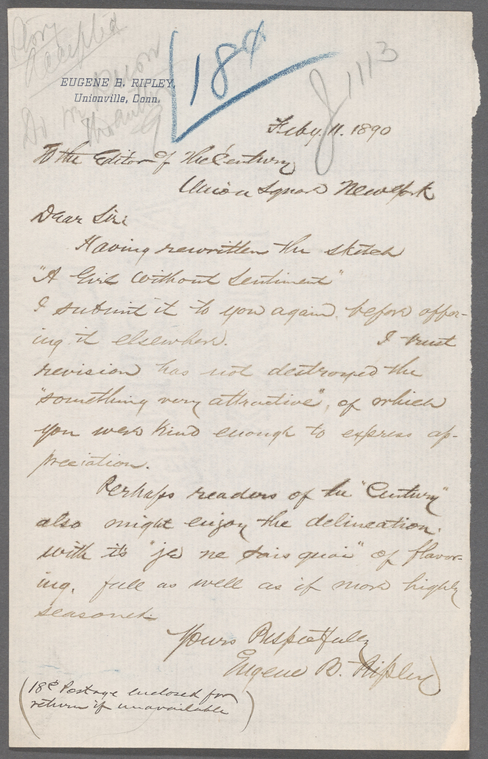 Story
Accepted
18¢
J 1113
EUGENE B. RIPLEY,
Unionville, Conn.
Feby. 11. 1890
To the Editor of The Century
Union Square New York
Dear Sir:
Having rewritten the sketch
"A Girl Without Sentiment"
I submit it to you again before offer-
ing it elsewhere. I trust
revision has not destroyed the
"something very attractive", of which
you were kind enough to express ap-
preciation.
Perhaps readers of the "Century"
also might enjoy the delineation.
with its "je ne sais quoi" of flavor-
ing, full as well as if more highly
seasoned.
Yours Respectfully
Eugene B. Ripley
(18¢ Postage enclosed for
return if unavailable)